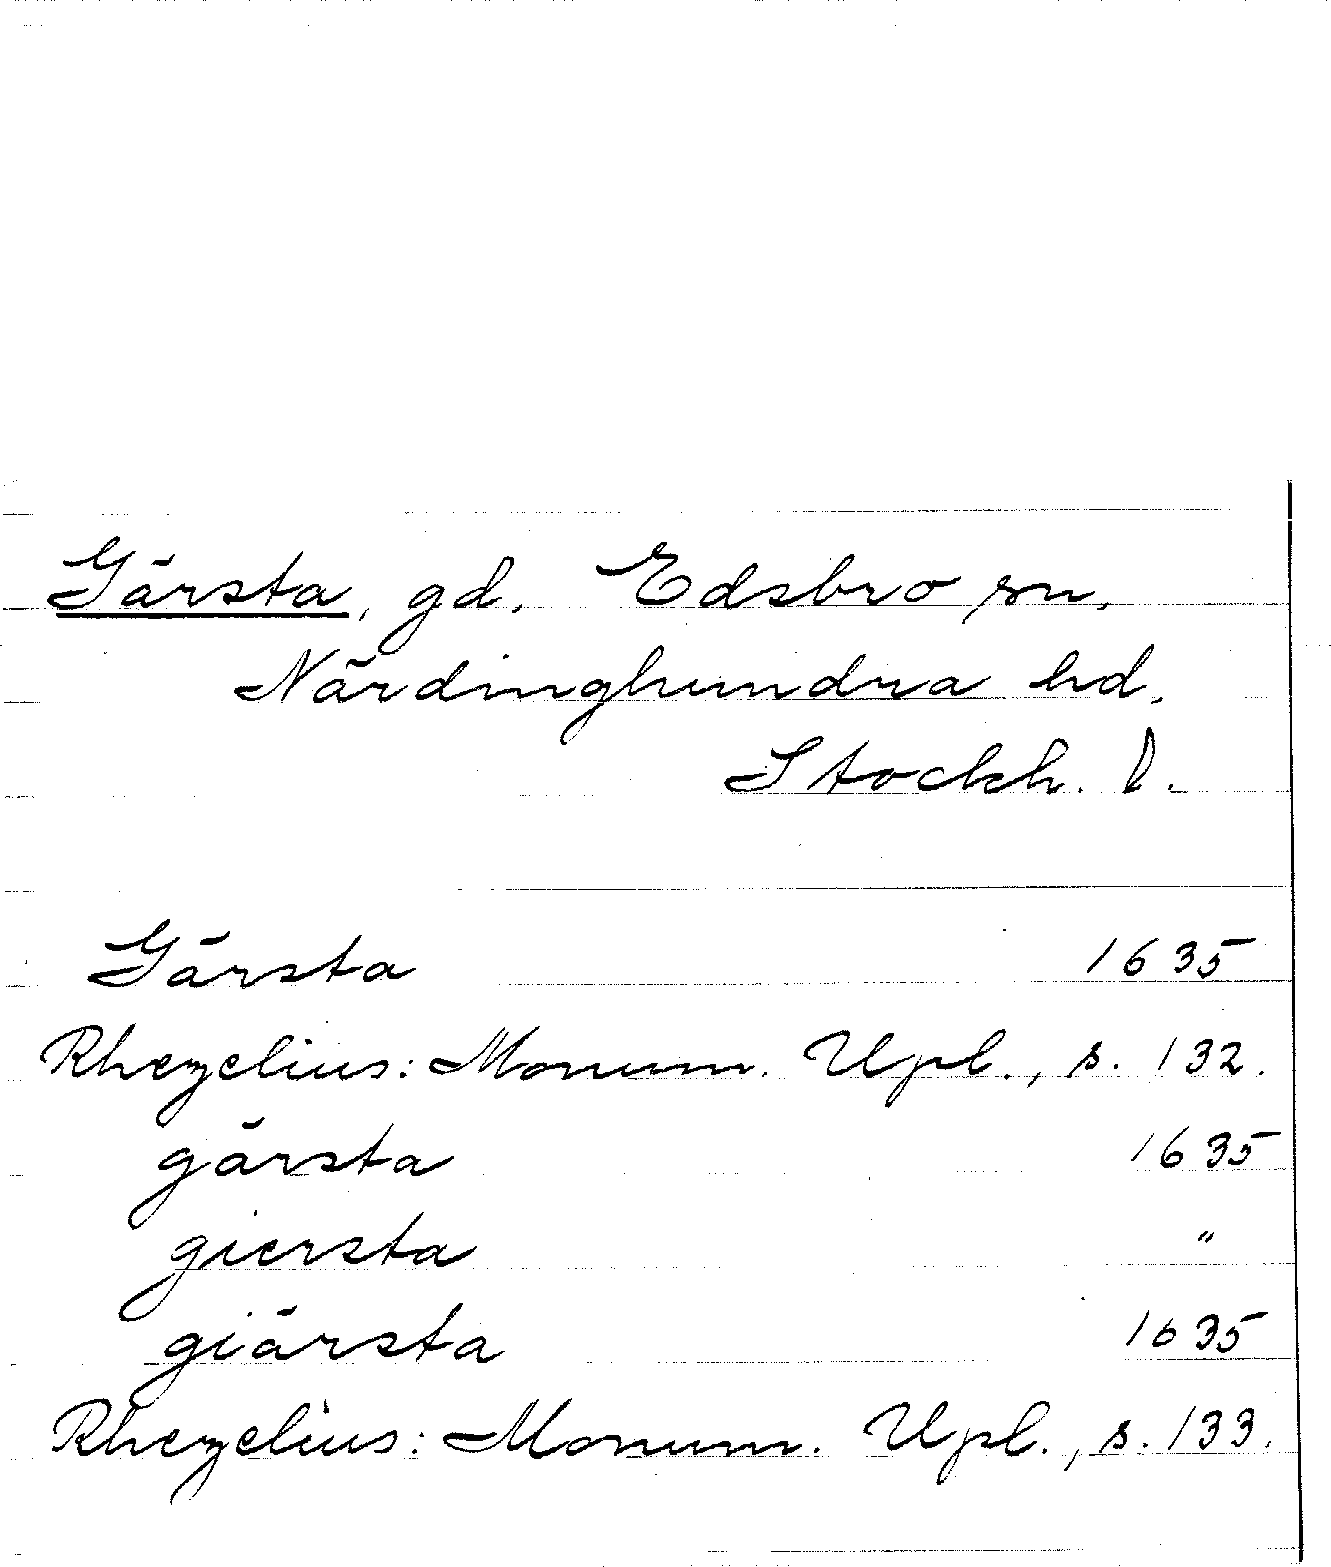 Gärsta, gd. Edsbro sn.
Närdinghundra hd.
Stockh. l.
Gärsta 1635
Rhezelius: Monum. Upl., s. 132.
gärsta 1635
giersta "
giärsta 1635
Rhezelius: Monum. Upl., s. 133.